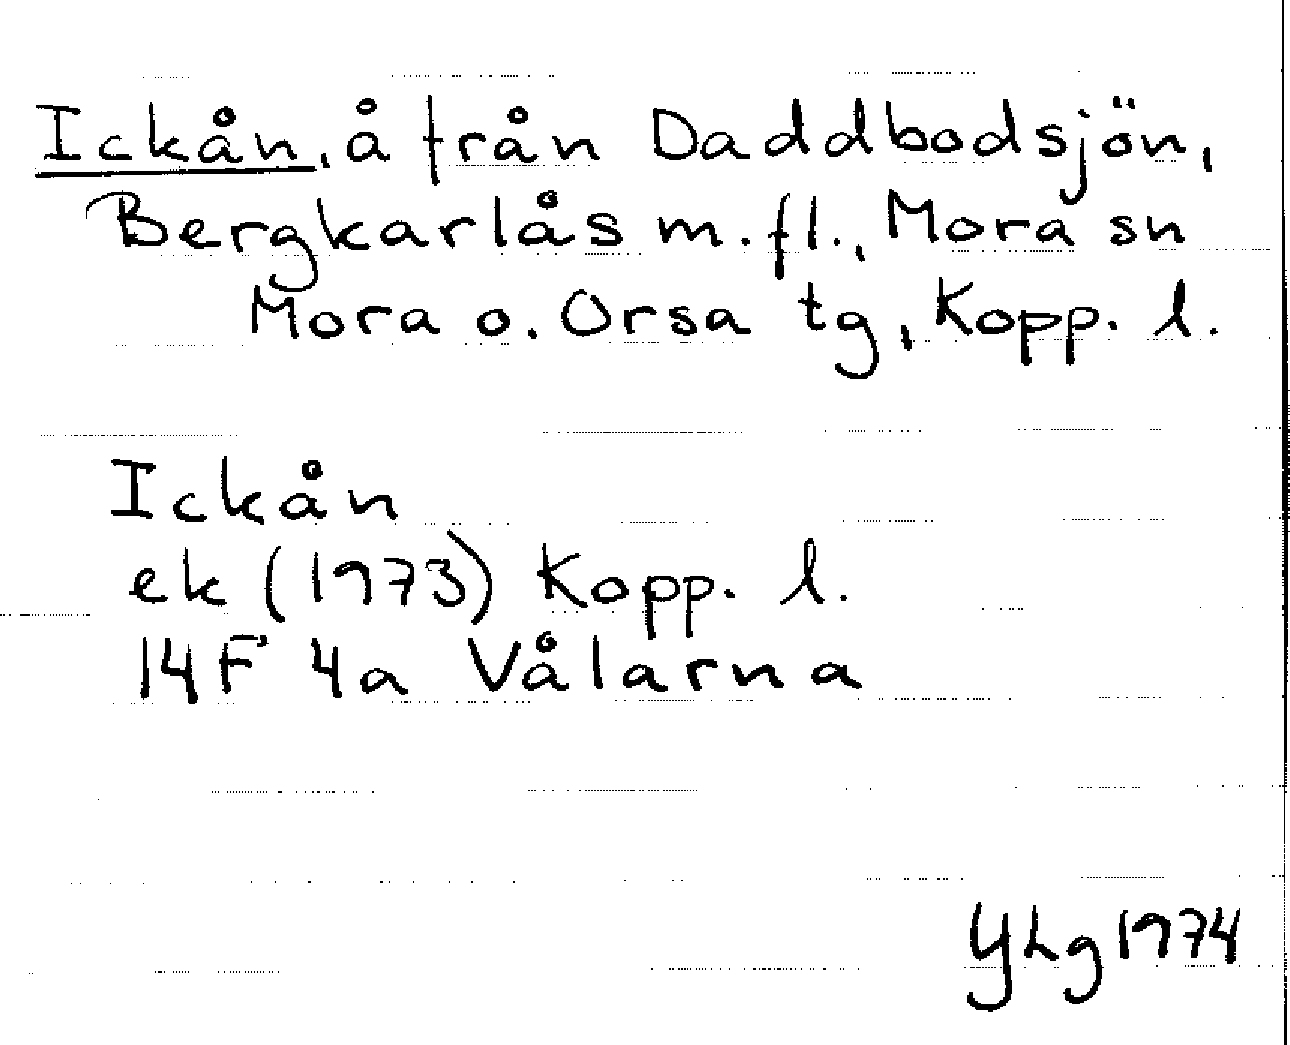 Ickån, å från Daddbodsjön,
Bergkarlås m.fl., Mora sn
Mora o. Orsa tg, Kopp. l.
Ickån
ek (1973) Kopp. l.
14F 4a Vålarna
YLg 1974